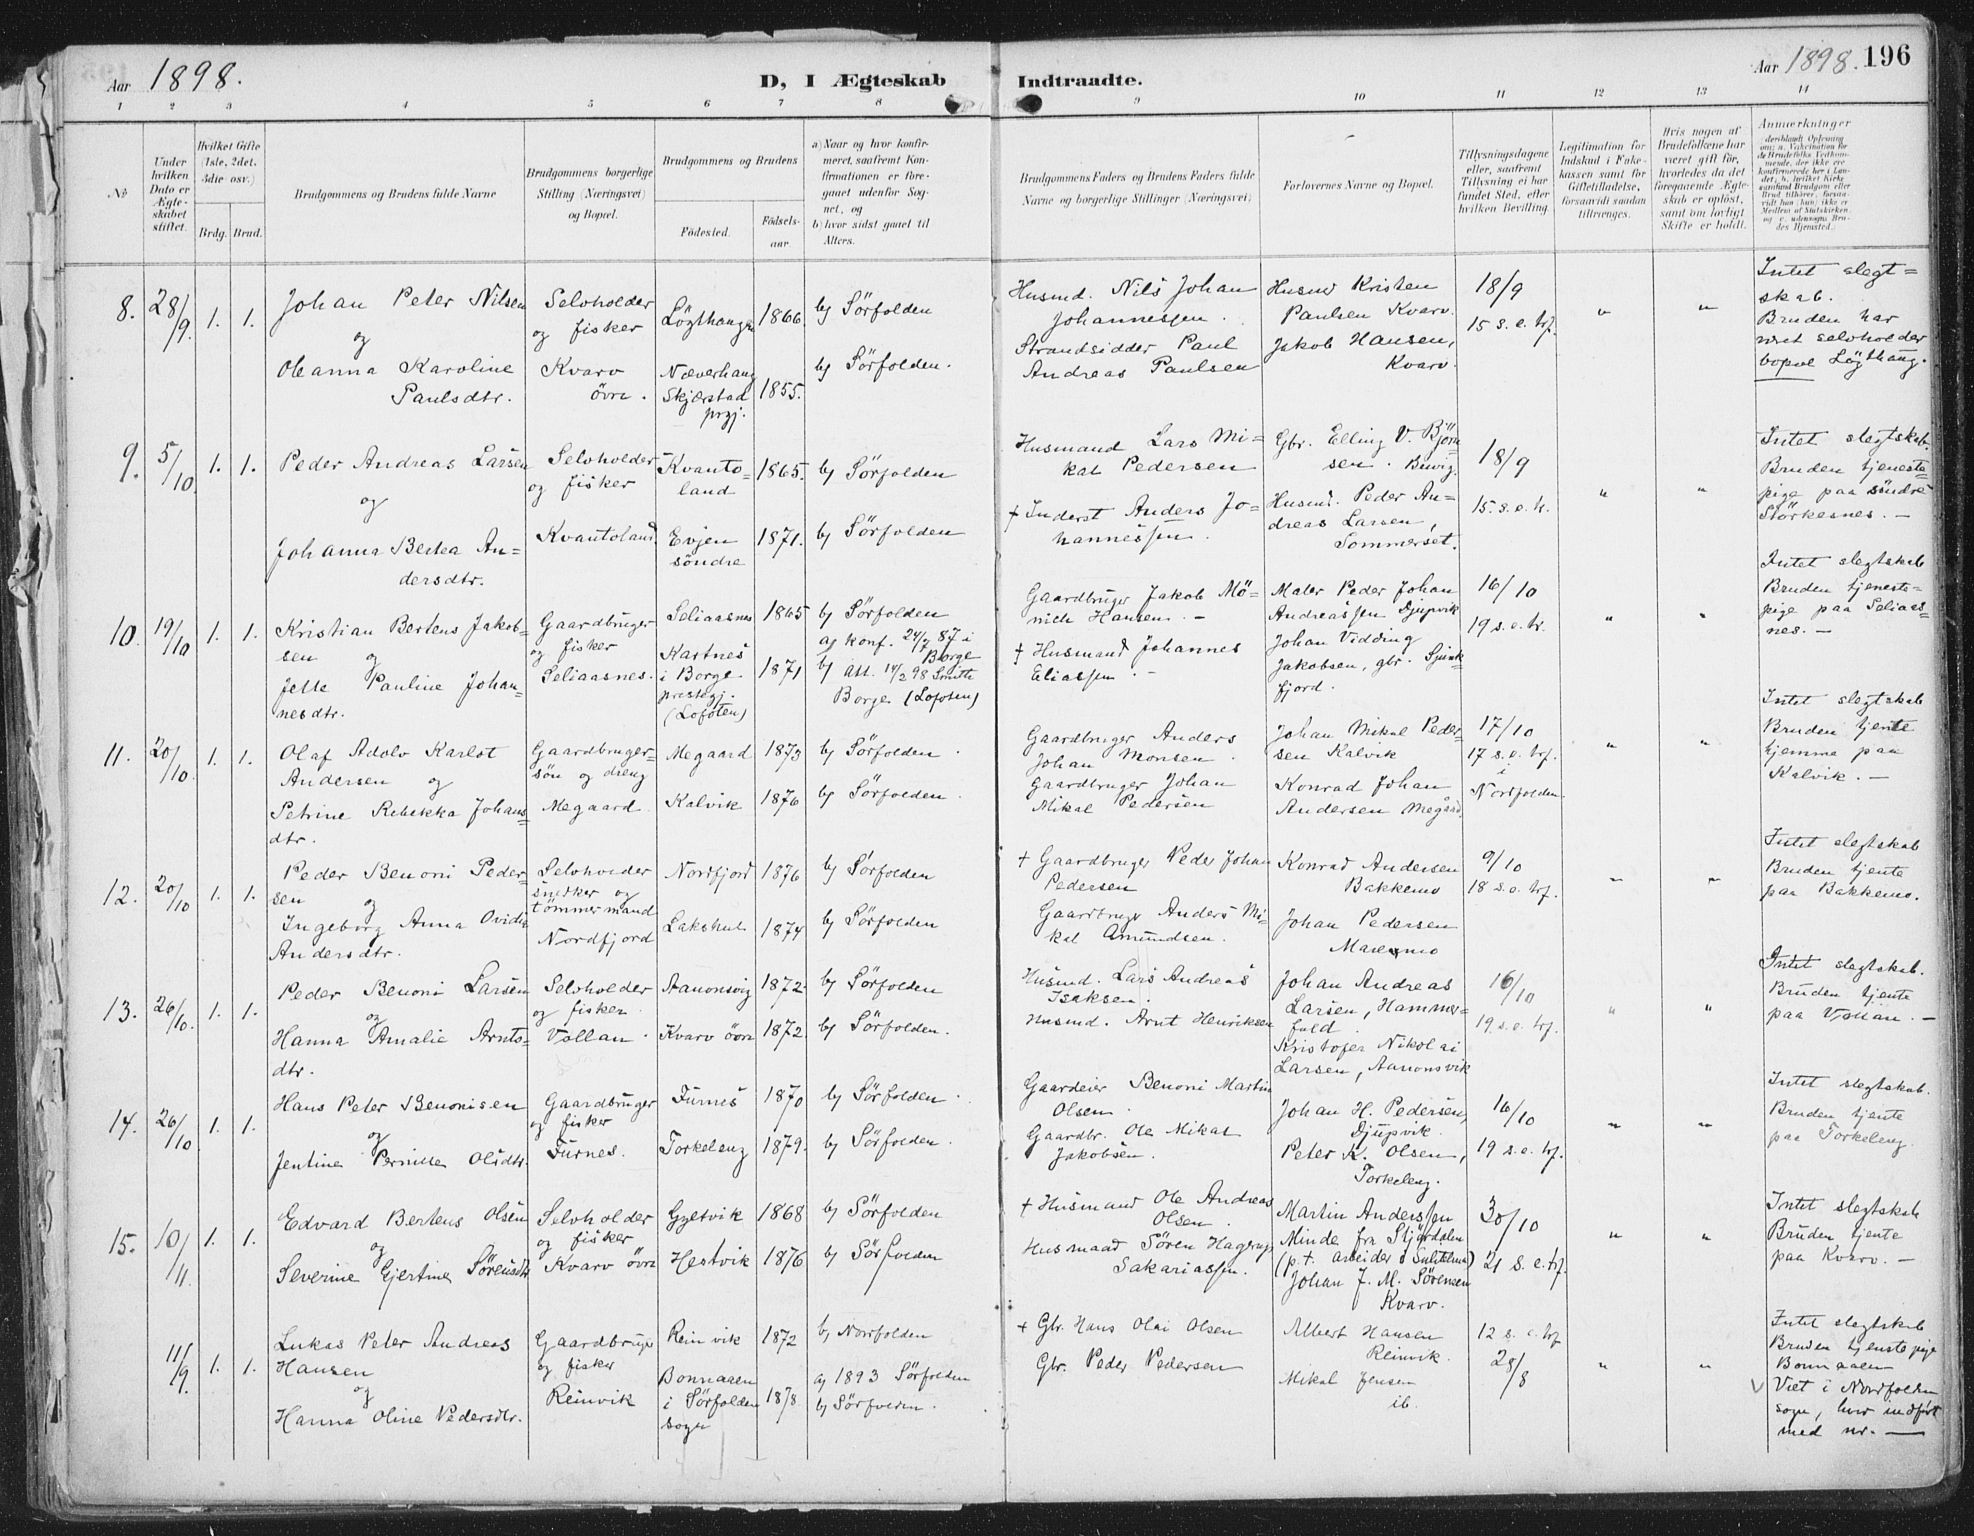 Aar 1898. D, I Ægteskab Indtraadte. Aar 1898. 196
1 2 3 4 5 6 7 8 9 10 11 12 13 14
№
Under hvilken Dato er Ægteskabet stiftet.
Hvilket Gifte (1ste, 2det, 3die osv.)
Brdg. Brud.
Brudgommens og Brudens fulde Navne
Brudgommens borgerlige Stilling (Næringsvei) og Bopæl.
Brudgommens og Brudens
Fødested. Fødselsaar.
a) Naar og hvor konfirmeret, saafremt Konfirmationen er foregaaet udenfor Sognet, og
b) hvor sidst gaaet til Alters.
Brudgommens Faders og Brudens Faders fulde Navne og borgerlige Stillinger (Næringsvei)
Forlovernes Navne og Bopæl.
Tillysningsdagene eller, saafremt Tillysning ei har fundet Sted, efter hvilken Bevilling.
Legitimation for Indskud i Enkekassen samt for Giftetilladelse, forsaavidt saadan tiltrænges.
Hvis nogen af Brudefolkene har været gift før, hvorledes da det foregaaende Ægteskab er opløst, samt om lovligt Skifte er holdt.
Anmærkninger
8. 28/9. 1. 1.
Johan Peter Nilsen
og
Oleanna Karoline
Paulsdtr.
Selvholder
og fisker
Kvarv
övre.
Lögthaugen 1866.
Næverhaug
Skjerstad 1855.
prgj.
b) Sörfolden
b) Sörfolden.
Husmd. Nils Johan
Johannessen.
Strandsidder Paul
Andreas Paulsen
Husmd Kristen
Paulsen Kvarv.
Jakob Hansen,
Kvarv.
18/9
15 s. e. trf.
" "
Intet slegt=
skab.
Bruden har
været selvholder
bopæl Lögthaug.
9. 5/10. 1. 1.
Peder Andreas Larsen
og
Johanna Berlea An=
dersdtr.
Selvholder
og fisker
Kvantoland
Kvanto= 1865.
land
Evjen 1871.
söndre
b) Sörfolden
b) Sörfolden
Husmand Lars Mi=
kal Pedersen
† Inderst Anders Jo=
hannessen.
Gbr. Elling V. Björn
sen.
Husmd. Peder An=
dreas Larsen,
Sommerset.
18/9
15. s. e. tr.
" "
Intet slegtskab.
Bruden tjeneste=
pige paa söndre
Störkesnes. —
10. 19/10 1. 1.
Kristian Bertens Jakob=
sen og
Jelle Pauline Johan=
nesdtr.
Gaardbruger
og fisker
Seliaasnes.
Seliaasnes 1865
Kartnes
i Borge 1871
prestegj.
(Lofoten)
b) Sörfolden
a) konf. 24/7 87 i
Borge
b) att. 14/2 98 Smitt
Borge (Lofoten)
Gaardbruger Jakob Mö=
nich Hansen. —
† Husmand Johannes
Eliassen. —
Maler Peder Johan
Andreassen Djupvik
Johan Vidding
Jakobsen, gbr. Sjunk=
fjord.
16/10
19 s. e. tr.
" "
Intet slegtskab
Bruden tjeneste=
pige paa Seliaas=
nes. —
11. 20/10. 1. 1.
Olaf Adolv Karlot
Andersen og
Petrine Rebekka Johans=
dtr.
Gaardbruger=
sön og dreng
Megaard
Megaard 1873
Kalvik 1876
b) Sörfolden.
b) Sörfolden.
Gaardbruger Anders
Johan Monsen.
Gaardbruger Johan
Mikal Pedersen
Johan Mikal Peder=
sen Kalvik
Konrad Johan
Andersen Megaard.
17/10
17 s. e. trf.
i
Nordfolden
" "
Intet slegtskab
Bruden tjente
hjemme paa
Kalvik. —
12. 20/10 1. 1.
Peder Benoni Peder=
sen og
Ingeborg Anna Ovidia
Andersdtr.
Selvholder
snedker og
tömmermand
Nordfjord
Nordfjord 1876
Lakshul 1874
b) Sörfolden
b) Sörfolden
† Gaardbruger Peder Johan
Pedersen
Gaardbruger Anders Mi=
kal Amundsen.
Konrad Andersen
Bakkemo
Johan Pedersen
9/10
18 s. e. trf.
" "
Intet slegtskab
Bruden tjente
paa Bakkemo.
13. 26/10. 1. 1.
Peder Benoni Larsen
og
Hanna Amalie Arnts=
dtr.
Selvholder
og fisker.
Vollan.
Aanonsvig 1872.
Kvarv övre 1872.
b) Sörfolden
b) Sörfolden.
Husmd. Lars Andreas
Isaksen.
Husmd. Arnt Henriksen
Johan Andreas
Larsen, Hammer=
fald.
Kristofer Nikolai
Larsen, Aanonsvik
16/10
19 s. e. trf.
" "
Intet slegtskab.
Bruden tjente
paa Vollan. —
14. 26/10 1. 1.
Hans Peter Benonisen
og
Jentine Pernille Olsdtr.
Gaardbruger
og fisker
Furnes.
Furnes 1870
Torkeleng 1879.
b) Sörfolden.
b) Sörfolden.
Gaardeier Benoni Martin
Olsen.
Gaardbr. Ole Mikal
Jakobsen.
Johan H. Pedersen,
Djupvik.
Peter K. Olsen,
Torkeleng.
16/10
19 s. e. trf.
" "
Intet slegtskab.
Bruden tjente
paa Torkeleng
15. 10/11. 1. 1.
Edvard Bertens Olsen
og
Severine Gjertine Sörensdtr
Selvholder
og fisker
Kvarv övre
Gyltvik 1868
Hestvik 1876
b) Sörfolden
b) Sörfolden
† Husmand Ole Andreas
Olsen.
Husmaad Sören Hagerup
Sakariassen.
Martin Anderssen
Minde fra Stjördalen
(p. t. arbeider i Sulitelma)
Johan J. M. Sörensen
Kvarv.
30/10
21 s. e. trf.
" "
Intet slegtskab
Bruden tjente
paa Kvarv. —
11/9. 1. 1.
Lukas Peter Andreas
Hansen
og
Hanna Oline Pedersdtr.
Gaardbruger
og fisker
Reinvik
Reinvik 1872
Bonnaaen
i Sörfolden 1878
sogn
b) Norfolden
a) 1893 Sörfolden
b) Sörfolden.
† Gbr. Hans Olai Olsen
Gbr. Peder Pedersen
Albert Hansen
Reinvik.
Mikal Jensen
ib.
12 s. e. trf
28/8
" "
Intet slegtskab
Bruden tjenstepige
Bonnaaen
Viet i Nordfolden
sogn, hvor indfört
med nr. —